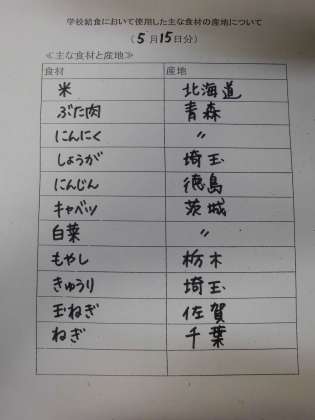 学校給食において使用した主な食材の産地について
(5月15日分)
≪主な食材と産地≫
食材 産地
米 北海道
ぶた肉 青森
にんにく 〃
しょうが 埼玉
にんじん 徳島
キャベツ 茨城
白菜 〃
もやし 栃木
きゅうり 埼玉
玉ねぎ 佐賀
ねぎ 千葉